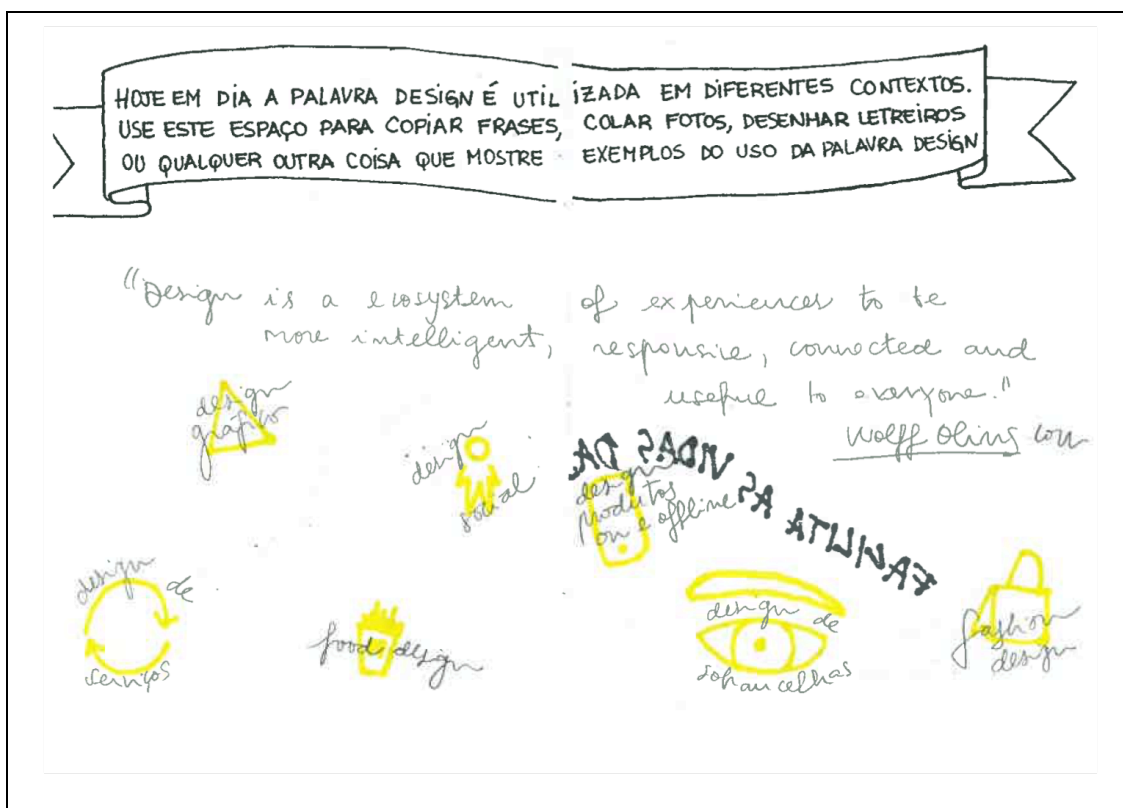 HOJE EM DIA A PALAVRA DESIGN É UTILIZADA EM DIFERENTES CONTEXTOS.
USE ESTE ESPAÇO PARA COPIAR FRASES, COLAR FOTOS, DESENHAR LETREIROS
OU QUALQUER OUTRA COISA QUE MOSTRE EXEMPLOS DO USO DA PALAVRA DESIGN
"Design is a ecosystem of experiences to be
more intelligent, responsive, connected and
useful to everyone."
Wolff Olins
design
gráfico
design
social
FACILITA AS VIDAS DA
design
produtos
on e offline
design de
serviços
food design
design de
sobrancelhas
fashion
design